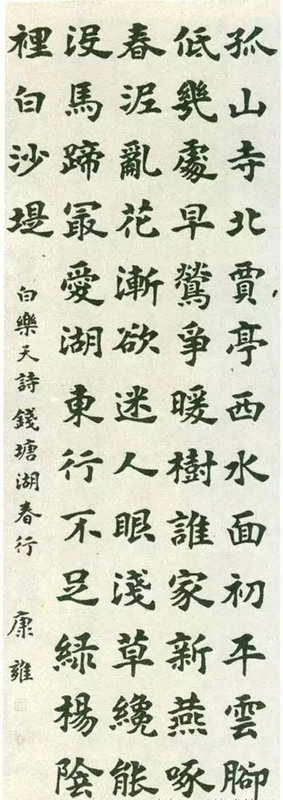 孤山寺北賈亭西水面初平雲腳
低幾處早鶯爭暖樹誰家新燕啄
春泥亂花漸欲迷人眼淺草纔能
沒馬蹄冣愛湖東行不足綠楊陰
裡白沙堤
白樂天詩錢塘湖春行　康雍